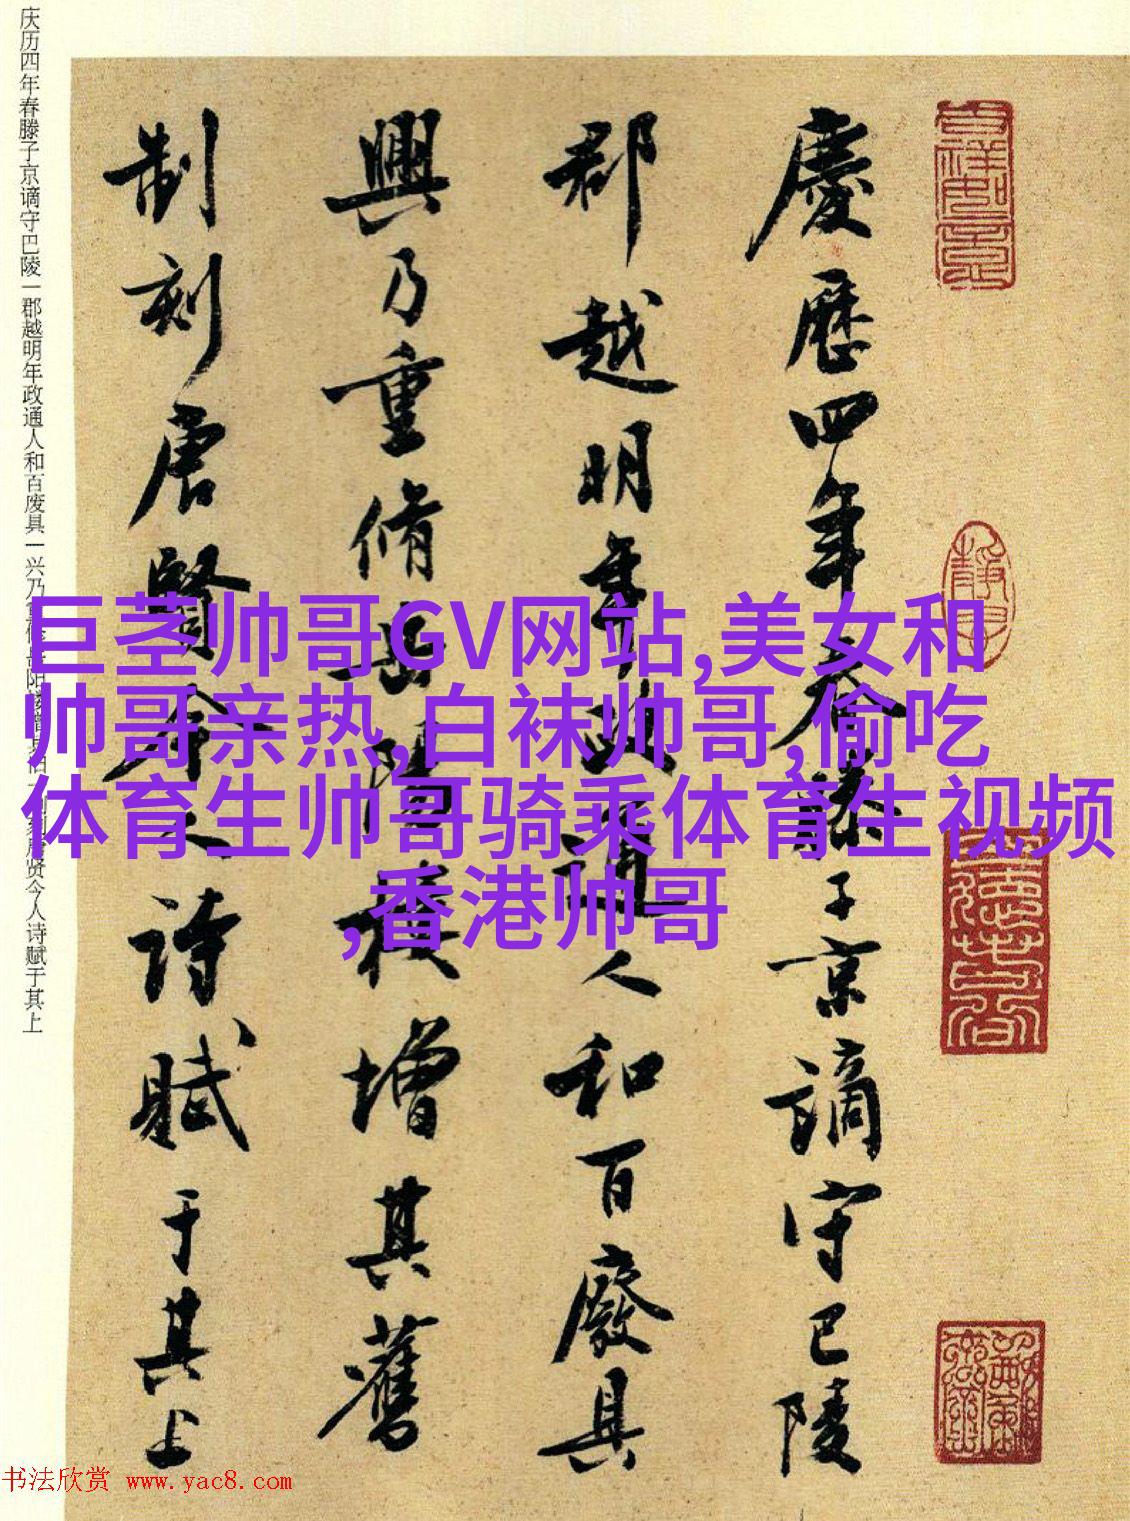 慶歷四年春滕子京謫守巴陵
郡越明年政通人和百廢具
興乃重脩岳陽樓增其舊
制刻唐賢今人詩賦于其上
庆历四年春滕子京谪守巴陵一郡越明年政通人和百废具一兴乃重修岳阳楼增其旧一制刻唐贤今人诗赋于其上
巨茎帅哥GV网站,美女和
帅哥亲热,白袜帅哥,偷吃
体育生帅哥骑乘体育生视频
,香港帅哥
书法欣赏 www.yac8.com